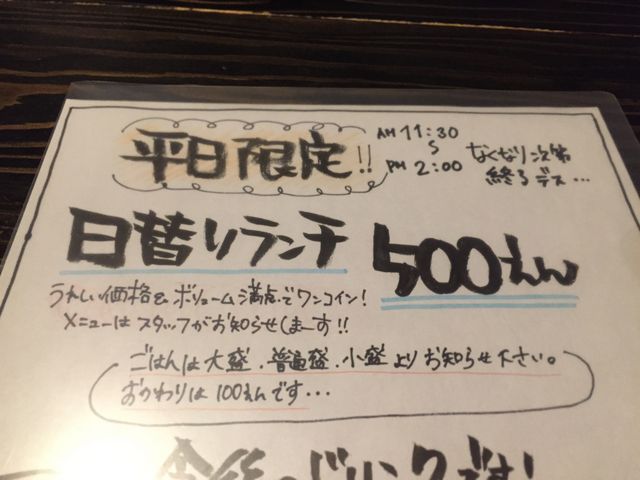 平日限定!!
AM 11:30
PM 2:00
なくなり次第
終るデス…
日替りランチ 500えん
うれしい価格&ボリューム満点でワンコイン!
メニューはスタッフがお知らせしまーす!!
ごはんは大盛.普通盛.小盛よりお知らせ下さい。
おかわりは100えんです…
ドリンクです!